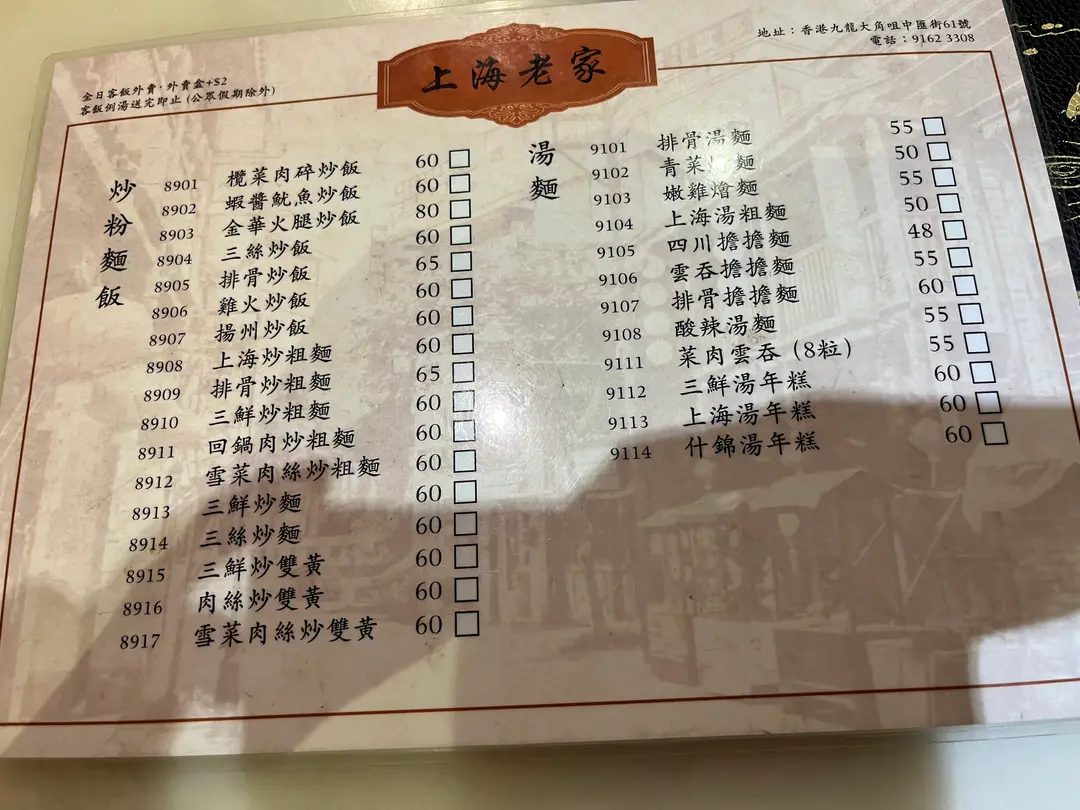 全日客飯外賣，外賣盒+$2
客飯例湯送完即止 (公眾假期除外)
上海老家
地址：香港九龍大角咀中匯街61號
電話：9162 3308
炒粉麵飯
8901 欖菜肉碎炒飯 60
8902 蝦醬魷魚炒飯 60
8903 金華火腿炒飯 80
8904 三絲炒飯 60
8905 排骨炒飯 65
8906 雞火炒飯 60
8907 揚州炒飯 60
8908 上海炒粗麵 60
8909 排骨炒粗麵 65
8910 三鮮炒粗麵 60
8911 回鍋肉炒粗麵 60
8912 雪菜肉絲炒粗麵 60
8913 三鮮炒麵 60
8914 三絲炒麵 60
8915 三鮮炒雙黃 60
8916 肉絲炒雙黃 60
8917 雪菜肉絲炒雙黃 60
湯麵
9101 排骨湯麵 55
9102 青菜 麵 50
9103 嫩雞燴麵 55
9104 上海湯粗麵 50
9105 四川擔擔麵 48
9106 雲吞擔擔麵 55
9107 排骨擔擔麵 60
9108 酸辣湯麵 55
9111 菜肉雲吞 (8粒) 55
9112 三鮮湯年糕 60
9113 上海湯年糕 60
9114 什錦湯年糕 60